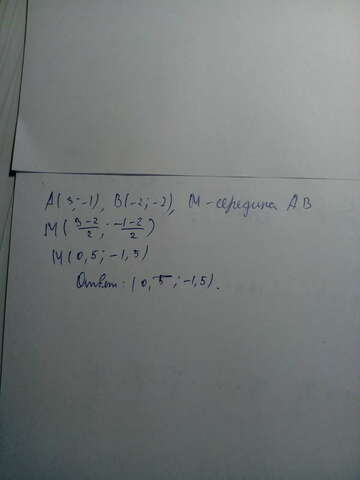 A(3;-1), B(-2;-2), M-середина AB
M(3-2/2; -1-2/2)
M(0,5;-1,5)
Ответ: (0,5;-1,5).